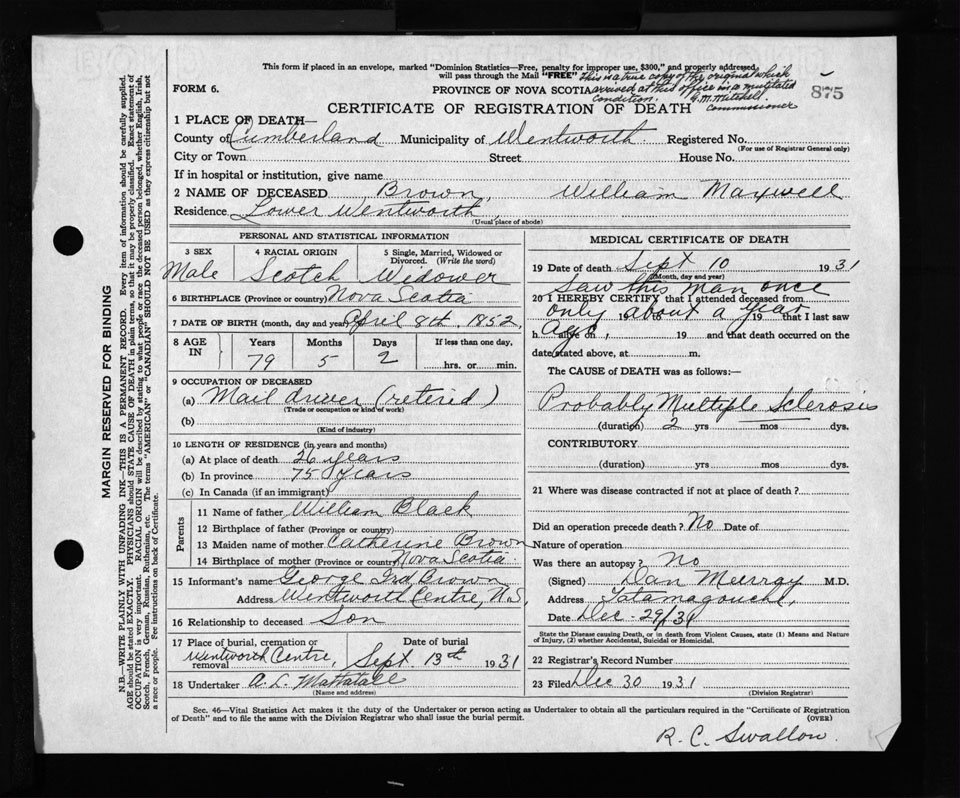 This form if placed in an envelope, marked "Dominion Statistics—Free, penalty for improper use, $300," and properly addressed,
will pass through the Mail "FREE"
This is a true copy of the original which
arrived at this office in a mutilated
condition. G. M. Mitchell.
Commissioner
875
FORM 6.
PROVINCE OF NOVA SCOTIA
CERTIFICATE OF REGISTRATION OF DEATH
1 PLACE OF DEATH—
County of Cumberland Municipality of Wentworth Registered No.
(For use of Registrar General only)
City or Town Street House No.
If in hospital or institution, give name
2 NAME OF DECEASED Brown, William Maxwell
Residence Lower Wentworth,
(Usual place of abode)
PERSONAL AND STATISTICAL INFORMATION
3 SEX 4 RACIAL ORIGIN 5 Single, Married, Widowed or Divorced. (Write the word)
Male Scotch Widower
6 BIRTHPLACE (Province or country) Nova Scotia
7 DATE OF BIRTH (month, day and year) April 8th, 1852,
8 AGE IN Years Months Days If less than one day,
79 5 2 hrs. or min.
9 OCCUPATION OF DECEASED
(a) Mail driver (retired)
(Trade or occupation or kind of work)
(b)
(Kind of industry)
10 LENGTH OF RESIDENCE (in years and months)
(a) At place of death 26 years
(b) In province 75 years
(c) In Canada (if an immigrant)
Parents
11 Name of father William Black
12 Birthplace of father (Province or country)
13 Maiden name of mother Catherine Brown
14 Birthplace of mother (Province or country) Nova Scotia
15 Informant's name George Brown
Address Wentworth Centre, N.S.
16 Relationship to deceased Son
17 Place of burial, cremation or removal Date of burial
Wentworth Centre, Sept 13th 1931
18 Undertaker A. L. Mattatall
(Name and address)
MEDICAL CERTIFICATE OF DEATH
19 Date of death Sept 10 1931
(Month, day and year)
Saw this man once
20 I HEREBY CERTIFY that I attended deceased from
only about a year
19 to 19 that I last saw
ago,
h alive on, 19 and that death occurred on the
date stated above, at m.
The CAUSE of DEATH was as follows:—
Probably Multiple Sclerosis
(duration) 2 yrs mos dys.
CONTRIBUTORY
(duration) yrs mos dys.
21 Where was disease contracted if not at place of death?
Did an operation precede death? No Date of
Nature of operation
Was there an autopsy? No
(Signed) Dan Murray M.D.
Address Tatamagouche,
Date Dec - 29/31
State the Disease causing Death, or in death from Violent Causes, state (1) Means and Nature
of Injury, (2) whether Accidental, Suicidal or Homicidal.
22 Registrar's Record Number
23 Filed Dec 30 1931
(Division Registrar)
Sec. 46—Vital Statistics Act makes it the duty of the Undertaker or person acting as Undertaker to obtain all the particulars required in the "Certificate of Registration
of Death" and to file the same with the Division Registrar who shall issue the burial permit.
(OVER)
R. C. Swallow.
MARGIN RESERVED FOR BINDING
N.B.—WRITE PLAINLY WITH UNFADING INK—THIS IS A PERMANENT RECORD. Every item of information should be carefully supplied.
AGE should be stated EXACTLY. PHYSICIANS should STATE CAUSE OF DEATH in plain terms, so that it may be properly classified. Exact statement of
OCCUPATION is very important. RACIAL ORIGIN will be described by stating to what people or race the deceased person belonged, whether English, Irish,
Scotch, French, German, Russian, Ruthenian, etc. The terms "AMERICAN" or "CANADIAN" SHOULD NOT BE USED as they express citizenship but not
a race or people. Fee instructions on back of Certificate.